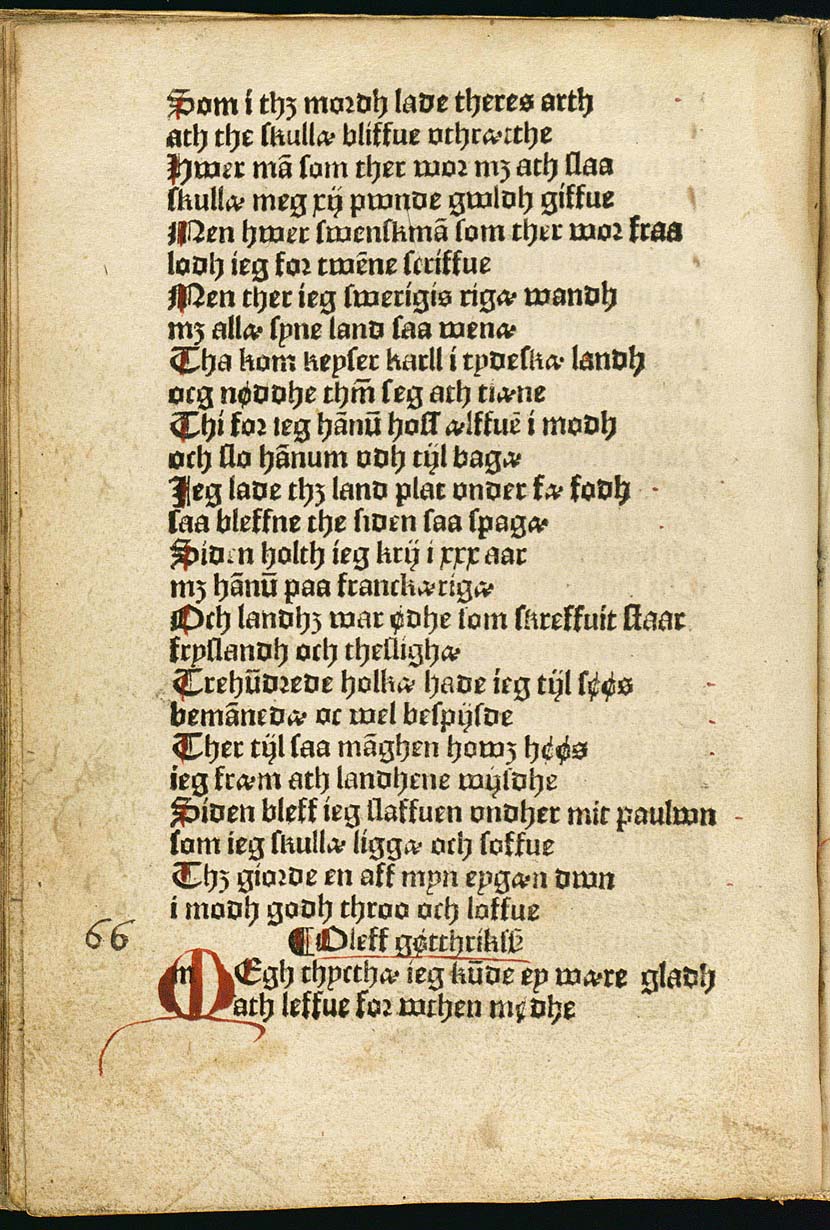 Som i thꝫ mordh lade theres arth
ath the skullæ bliffue vthrætthe
Hwer mā som ther wor mꝫ ath slaa
skullæ meg xij pwnde gwldh giffue
Men hwer swenskmā som ther wor fraa
lodh ieg for twēne scriffue
Men ther ieg swerigis rigæ wandh
mꝫ allæ syne land saa wenæ
Tha kom keyser karll i tydeskæ landh
ocg nøddhe thm̄ seg ath tiæne
Thi for ieg hānū hoss ælffuē i modh
och slo hānum vdh tijl bagæ
Jeg lade thꝫ land plat vnder fæ fodh
saa bleffne the siden saa spagæ
Siden holth ieg krij i xxx aar
mꝫ hānū paa franckærigæ
Och landhꝫ war ødhe som skreffuit staar
fryslandh och thesslighæ
Trehūdrede holkæ hade ieg tijl søøs
bemānedæ oc wel bespijsde
Ther tijl saa māghen howꝫ høøs
ieg fræm ath landhene wijsdhe
Siden bleff ieg slaffuen vndher mit paulwn
som ieg skullæ liggæ och soffue
Thꝫ giorde en aff myn eygæn dwn
i modh godh throo och loffue
66 ¶ Oleff gøtthriksø̄
MEgh thycthæ ieg kūde ey wære gladh
ath leffue for wthen mødhe